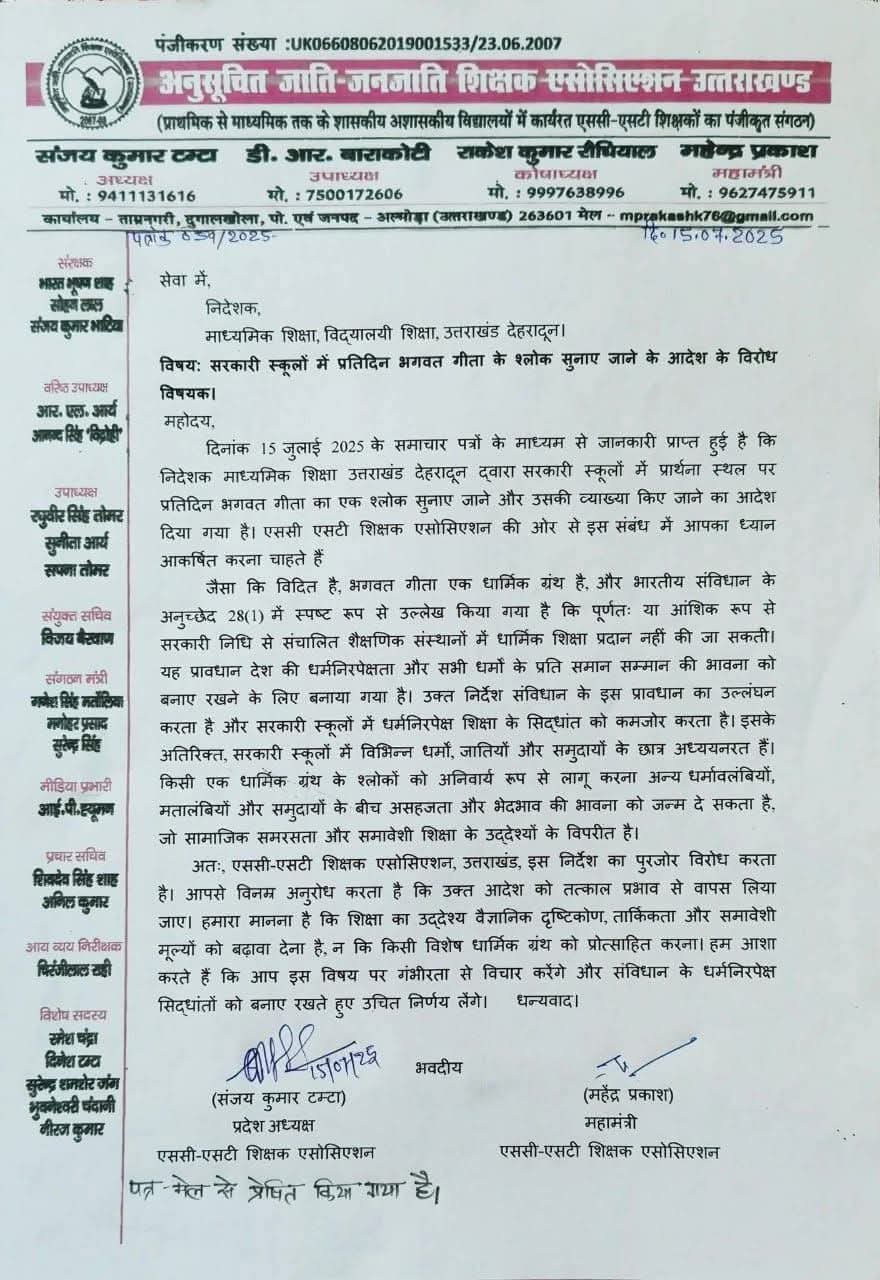 पंजीकरण संख्या :UK06608062019001533/23.06.2007
अनुसूचित जाति-जनजाति शिक्षक एसोसिएशन उत्तराखण्ड
(प्राथमिक से माध्यमिक तक के शासकीय अशासकीय विद्यालयों में कार्यरत एससी-एसटी शिक्षकों का पंजीकृत संगठन)
संजय कुमार टम्टा डी. आर. बाराकोटी राकेश कुमार महेन्द्र प्रकाश
अध्यक्ष उपाध्यक्ष कोषाध्यक्ष महामंत्री
मो. : 9411131616 मो. : 7500172606 मो. : 9997638996 मो. : 9627475911
कार्यालय – ताम्रनगरी, दुगालखोला, पो. एवं जनपद – अल्मोड़ा (उत्तराखण्ड) 263601 मेल – mprakashk76@gmail.com
पत्रांक 039/2025- दि० 15.07.2025
संरक्षक
भारत भूषण शाह
सोहन लाल
संजय कुमार भाटिया
वरिष्ठ उपाध्यक्ष
आर. एल. आर्य
आनन्द सिंह 'विद्रोही'
उपाध्यक्ष
रघुवीर सिंह तोमर
सुनीता आर्य
सपना तोमर
संयुक्त सचिव
विजय बैरवाण
संगठन मंत्री
गणेश सिंह मर्तोलिया
मनोहर प्रसाद
सुरेन्द्र सिंह
मीडिया प्रभारी
आई.पी.ह्यूमन
प्रचार सचिव
शिवदेव सिंह शाह
अनिल कुमार
आय व्यय निरीक्षक
चिरंजीलाल राही
विशेष सदस्य
रमेश चंद्रा
दिनेश टम्टा
सुरेन्द्र शमशेर जंग
भुवनेश्वरी चंदानी
नीरज कुमार
सेवा में,
निदेशक,
माध्यमिक शिक्षा, विद्यालयी शिक्षा, उत्तराखंड देहरादून।
विषय: सरकारी स्कूलों में प्रतिदिन भगवत गीता के श्लोक सुनाए जाने के आदेश के विरोध
विषयक।
महोदय,
दिनांक 15 जुलाई 2025 के समाचार पत्रों के माध्यम से जानकारी प्राप्त हुई है कि
निदेशक माध्यमिक शिक्षा उत्तराखंड देहरादून द्वारा सरकारी स्कूलों में प्रार्थना स्थल पर
प्रतिदिन भगवत गीता का एक श्लोक सुनाए जाने और उसकी व्याख्या किए जाने का आदेश
दिया गया है। एससी एसटी शिक्षक एसोसिएशन की ओर से इस संबंध में आपका ध्यान
आकर्षित करना चाहते हैं
जैसा कि विदित है, भगवत गीता एक धार्मिक ग्रंथ है, और भारतीय संविधान के
अनुच्छेद 28(1) में स्पष्ट रूप से उल्लेख किया गया है कि पूर्णतः या आंशिक रूप से
सरकारी निधि से संचालित शैक्षणिक संस्थानों में धार्मिक शिक्षा प्रदान नहीं की जा सकती।
यह प्रावधान देश की धर्मनिरपेक्षता और सभी धर्मों के प्रति समान सम्मान की भावना को
बनाए रखने के लिए बनाया गया है। उक्त निर्देश संविधान के इस प्रावधान का उल्लंघन
करता है और सरकारी स्कूलों में धर्मनिरपेक्ष शिक्षा के सिद्धांत को कमजोर करता है। इसके
अतिरिक्त, सरकारी स्कूलों में विभिन्न धर्मों, जातियों और समुदायों के छात्र अध्ययनरत हैं।
किसी एक धार्मिक ग्रंथ के श्लोकों को अनिवार्य रूप से लागू करना अन्य धर्मावलंबियों,
मतालंबियों और समुदायों के बीच असहजता और भेदभाव की भावना को जन्म दे सकता है,
जो सामाजिक समरसता और समावेशी शिक्षा के उद्देश्यों के विपरीत है।
अतः, एससी-एसटी शिक्षक एसोसिएशन, उत्तराखंड, इस निर्देश का पुरजोर विरोध करता
है। आपसे विनम्र अनुरोध करता है कि उक्त आदेश को तत्काल प्रभाव से वापस लिया
जाए। हमारा मानना है कि शिक्षा का उद्देश्य वैज्ञानिक दृष्टिकोण, तार्किकता और समावेशी
मूल्यों को बढ़ावा देना है, न कि किसी विशेष धार्मिक ग्रंथ को प्रोत्साहित करना। हम आशा
करते हैं कि आप इस विषय पर गंभीरता से विचार करेंगे और संविधान के धर्मनिरपेक्ष
सिद्धांतों को बनाए रखते हुए उचित निर्णय लेंगे। धन्यवाद।
15/07/25 भवदीय
(संजय कुमार टम्टा) (महेंद्र प्रकाश)
प्रदेश अध्यक्ष महामंत्री
एससी-एसटी शिक्षक एसोसिएशन एससी-एसटी शिक्षक एसोसिएशन
पत्र-मेल से प्रेषित किया गया है।